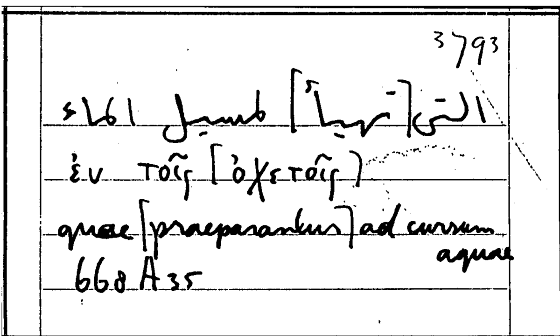 3793
التي [تهيأ] لمسيل الماء
ἐν τοῖς [ὀχετοῖς]
quae [praeparantur] ad cursum
aquae
668 A 35